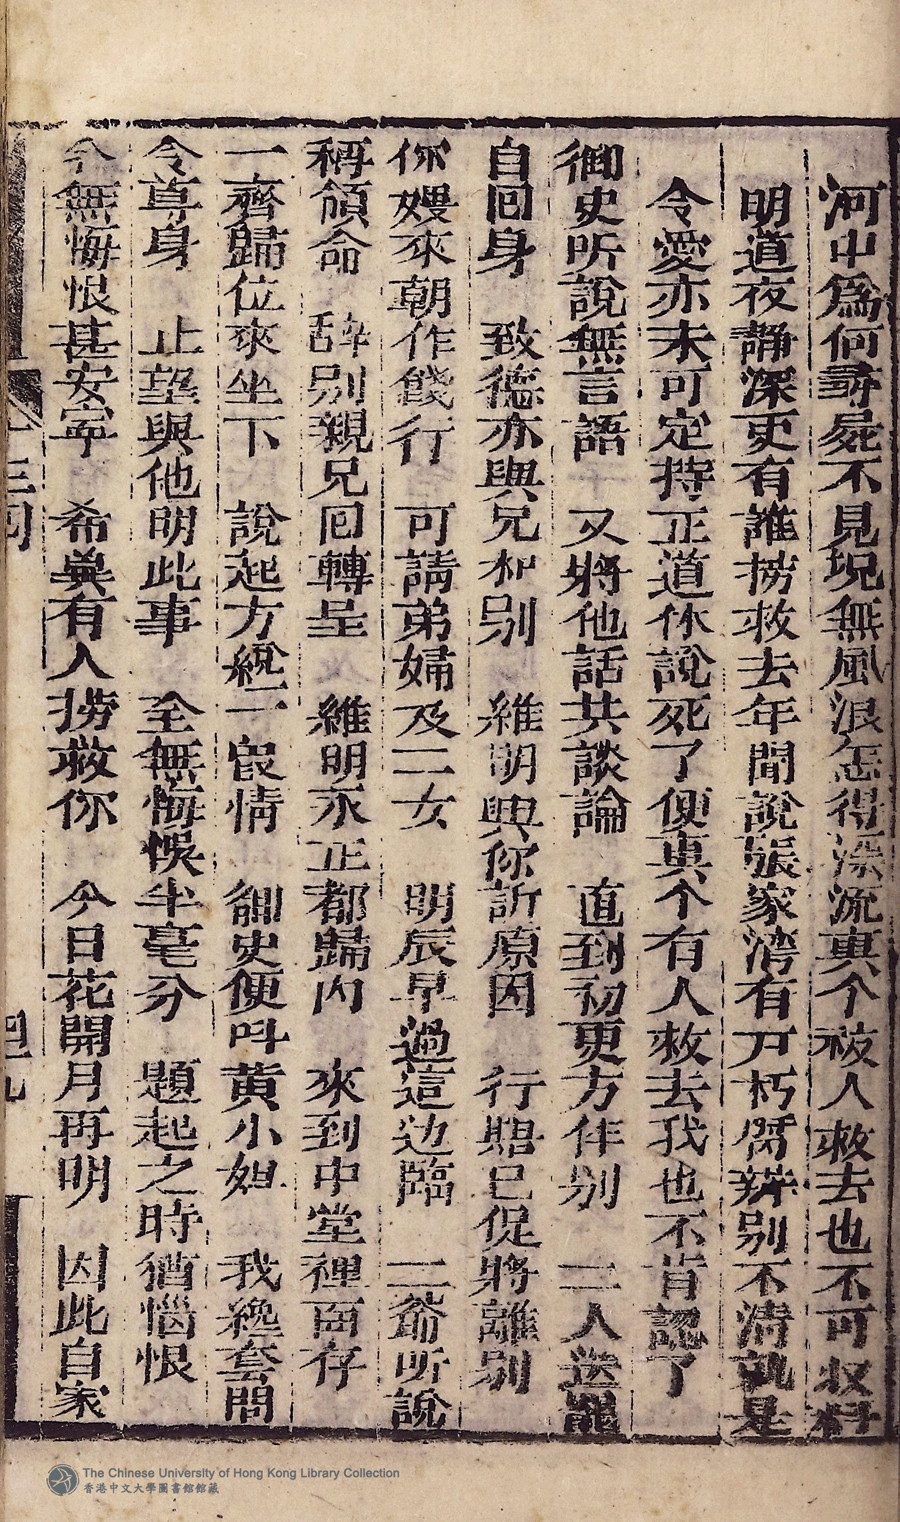 河中爲何尋屍不見况無風浪怎得深流真个被人救去也不可収料
明道夜静深更有誰撈救去年聞說張家湾有刀朽臂辨别不清就是
令愛亦未可定持正道休說死了便真个有人救去我也不肯認了
御史听說無言語 又將他話共談論 直到初更方伴别 二人送罷
自回身 致德亦與兄相别 維明與你訴原因 行期已促將離别
你嫂來朝作餞行 可請弟婦及二女 明辰早過這边臨 二爺听說
稱領命 辞别親兄回轉呈 維明永正都歸内 來到中堂裡面存
一齊歸位來坐下 說起方纔一叚情 御史便呌黄小姐 我纔套問
令尊身 止望與他明此事 全無悔悞半毫分 題起之時猶惱恨
今無悔恨甚安寧 希兾有人撈救你 今日花開月再明 因此自家
三回
四九
The Chinese University of Hong Kong Library Collection
香港中文大學圖書館館藏